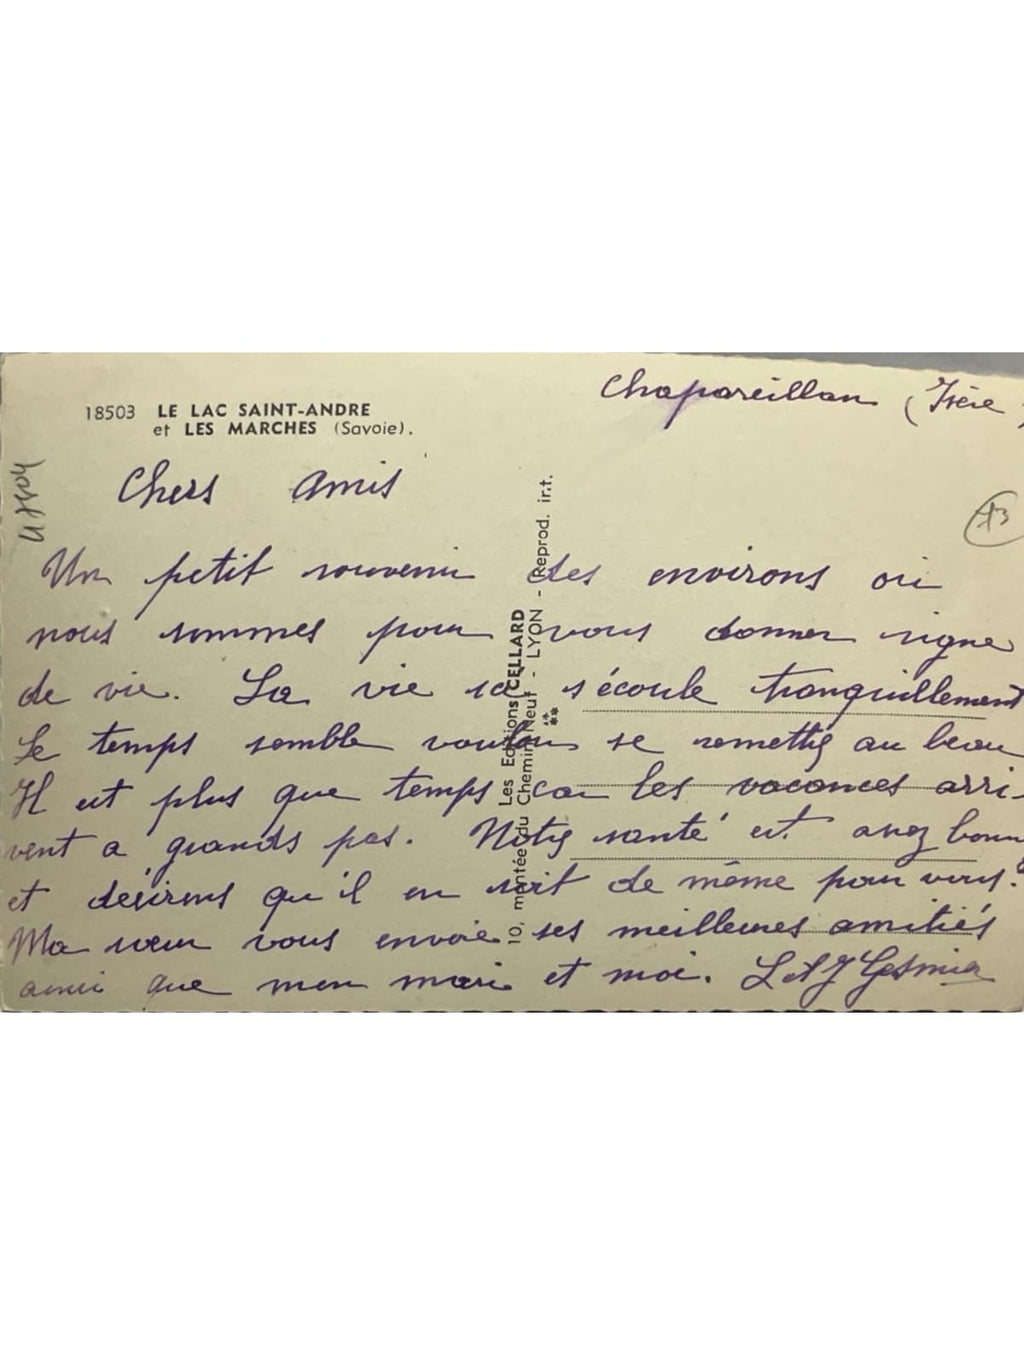 Chapareillan (Isère)
18503 LE LAC SAINT-ANDRE
et LES MARCHES (Savoie).
Chers Amis
Un petit souvenir des environs où
nous sommes pour vous donner signe
de vie. La vie s'écoule tranquillement
Le temps semble vouloir se remettre au beau
Il est plus que temps car les vacances arri-
vent a grands pas. Notre santé est assez bonne
et désirons qu'il en soit de même pour vous.
Ma sœur vous envoie ses meilleures amitiés
ainsi que mon mari et moi. L et J
Les Editions CELLARD
10, montée du Chemin Neuf - LYON - Reprod. int.